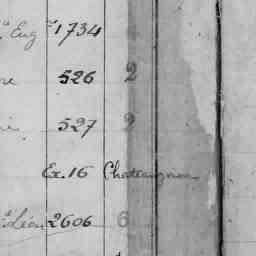 Eug 1734
526 2
527 2
Ex. 16 Chataignon
Léon 2606 6